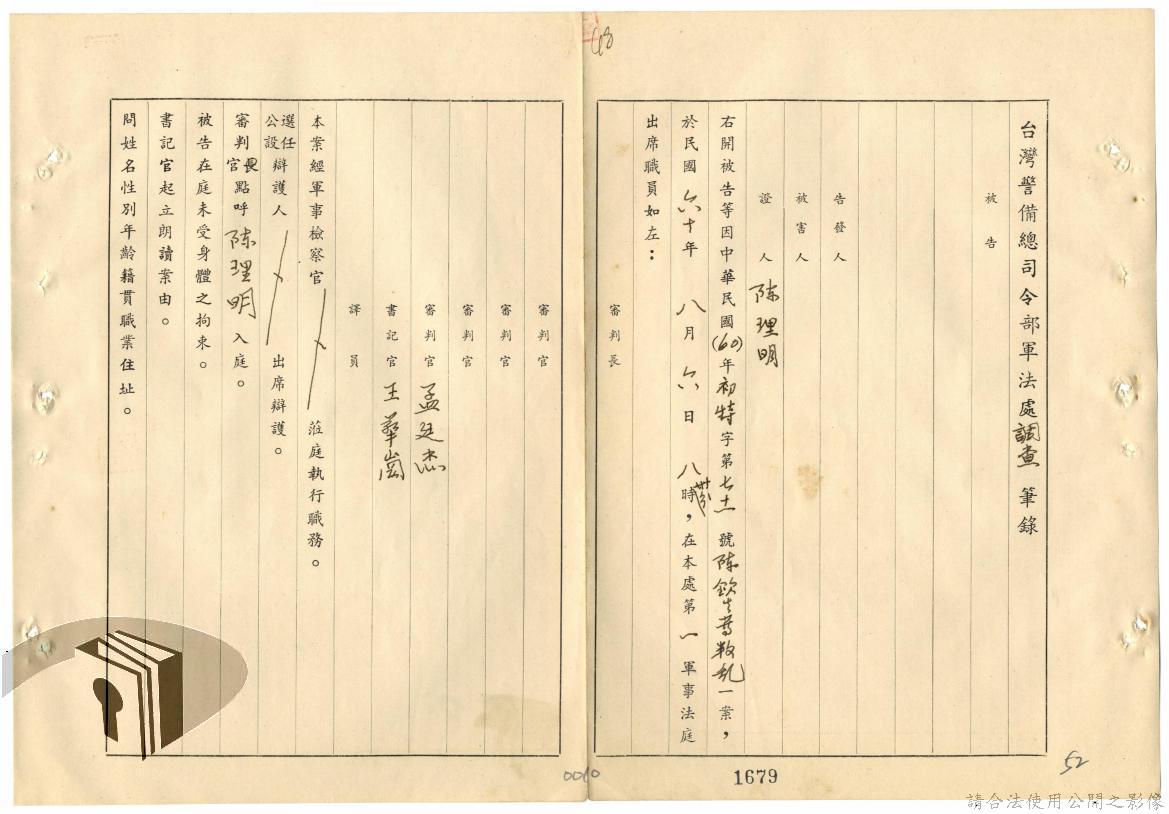 48
台灣警備總司令部軍法處調查筆錄
被告
告發人
被害人
證人 陈理明
右開被告等因中華民國(60)年初特字第七十一號陈欽生等叛乱一案,
於民國六十年八月六日八時卅分,在本處第一軍事法庭
出席職員如左:
審判長
審判官
審判官
審判官
審判官 孟廷杰
書記官 王華崗
譯員
本案經軍事檢察官 蒞庭執行職務。
選任公設辯護人 出席辯護。
審判長官點呼陈理明入庭。
被告在庭未受身體之拘束。
書記官起立朗讀案由。
問姓名性別年齡籍貫職業住址。
0010
1679
52
請合法使用公開之影像